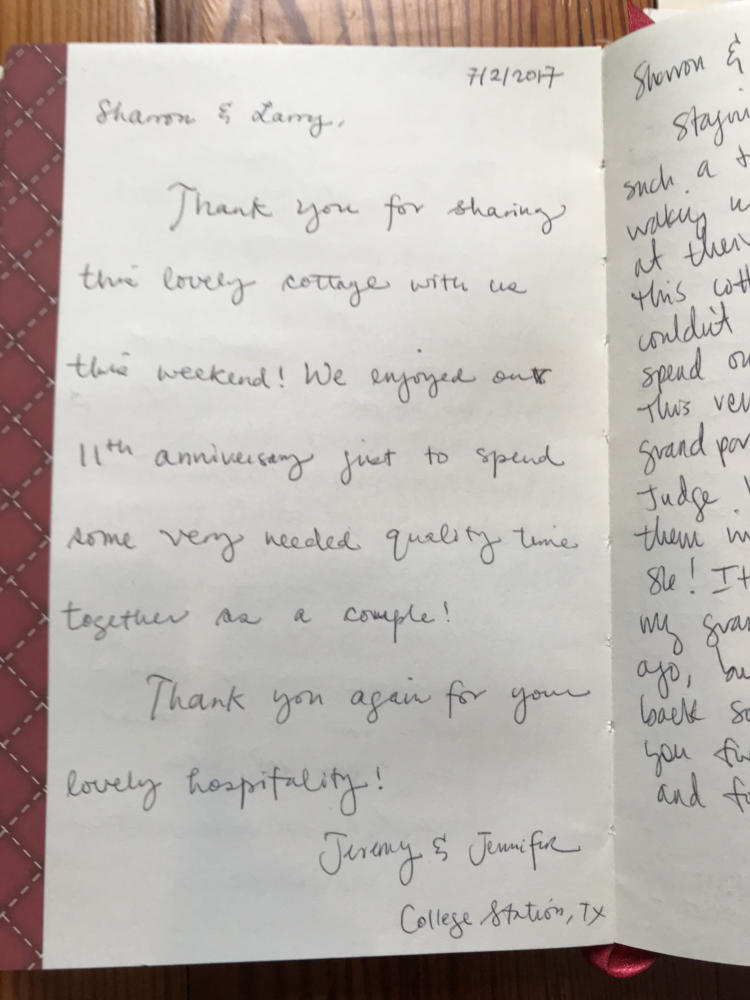 7/2/2017
Sharron & Larry,
Thank you for sharing
this lovely cottage with us
this weekend! We enjoyed our
11th anniversary just to spend
some very needed quality time
together as a couple!
Thank you again for your
lovely hospitality!
Jeremy & Jennifer
College Station, TX
Sharron &
such a
at their
this
couldn't
spend
This
grand
Judge
them
She! It
my
ago,
back
you
and